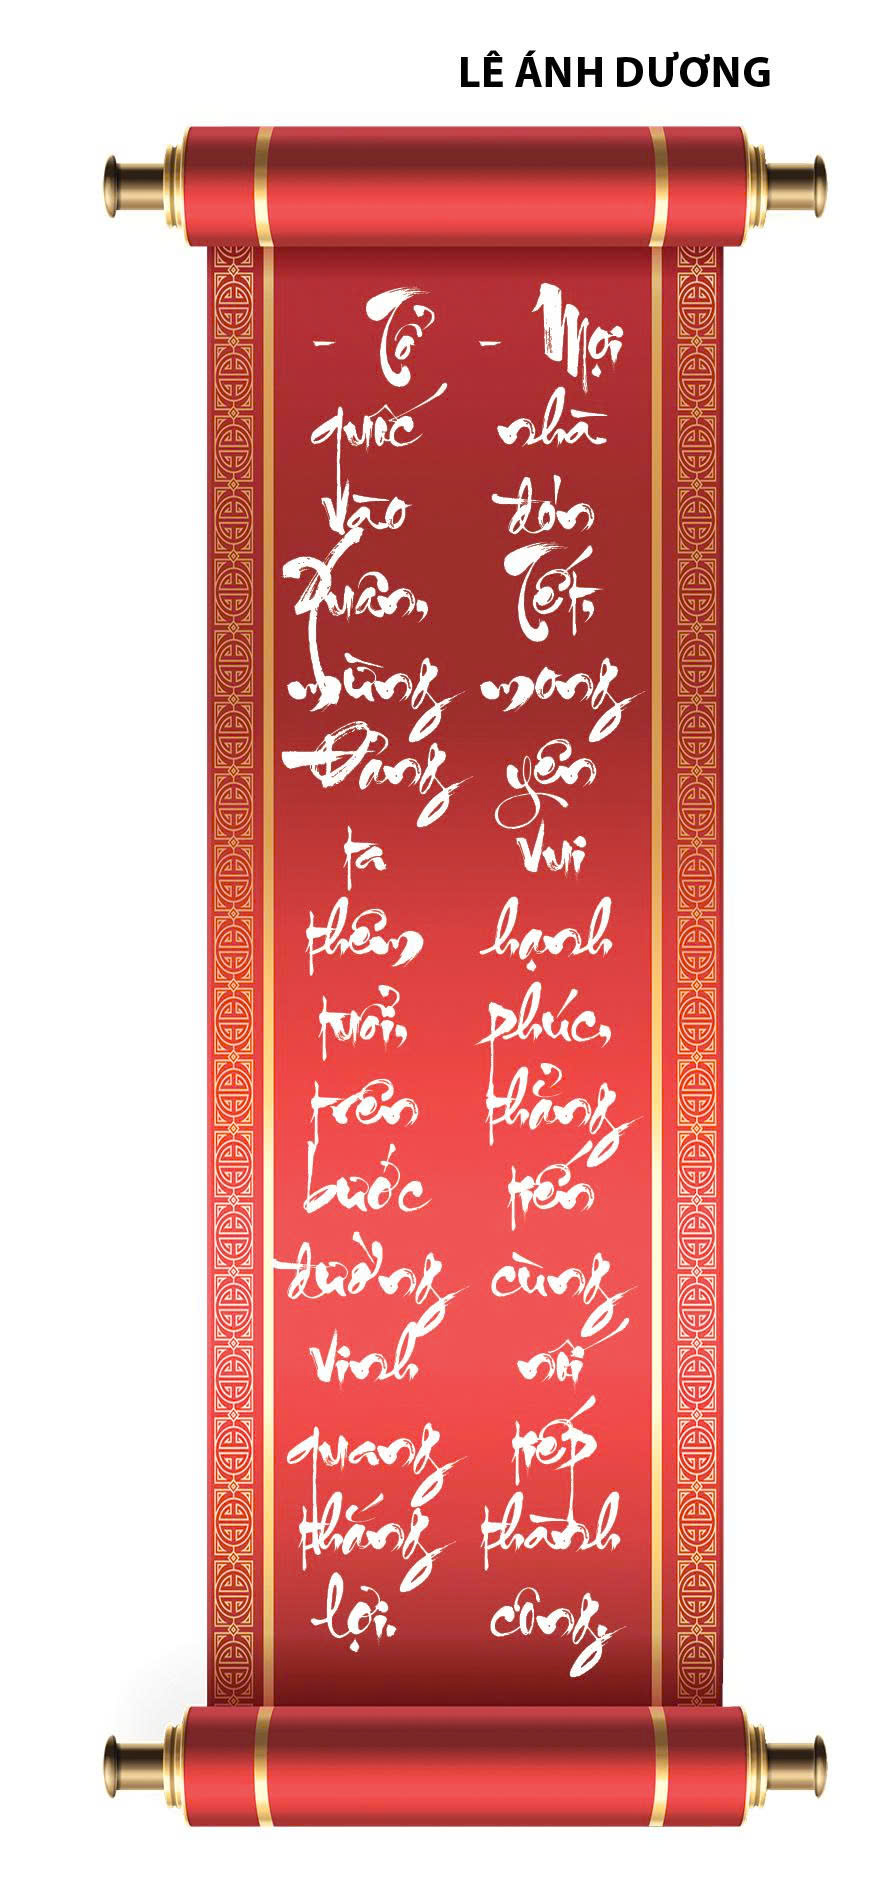 LÊ ÁNH DƯƠNG
- Tổ quốc vào Xuân, mừng Đảng ta thêm tuổi, trên bước đường vinh quang thắng lợi.
- Mọi nhà đón Tết, mong yên vui hạnh phúc, thẳng tiến cùng nối tiếp thành công.